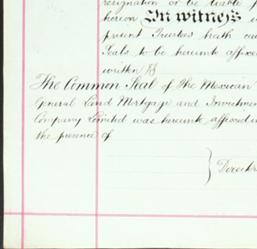 resignation or be liable f
hereon In witness
present Trustees hath cau
Seals to be hereunto affixed
written
The Common Seal of the Mexican
General Land Mortgage and Investment
Company Limited was hereunto affixed in
the presence of
Directors